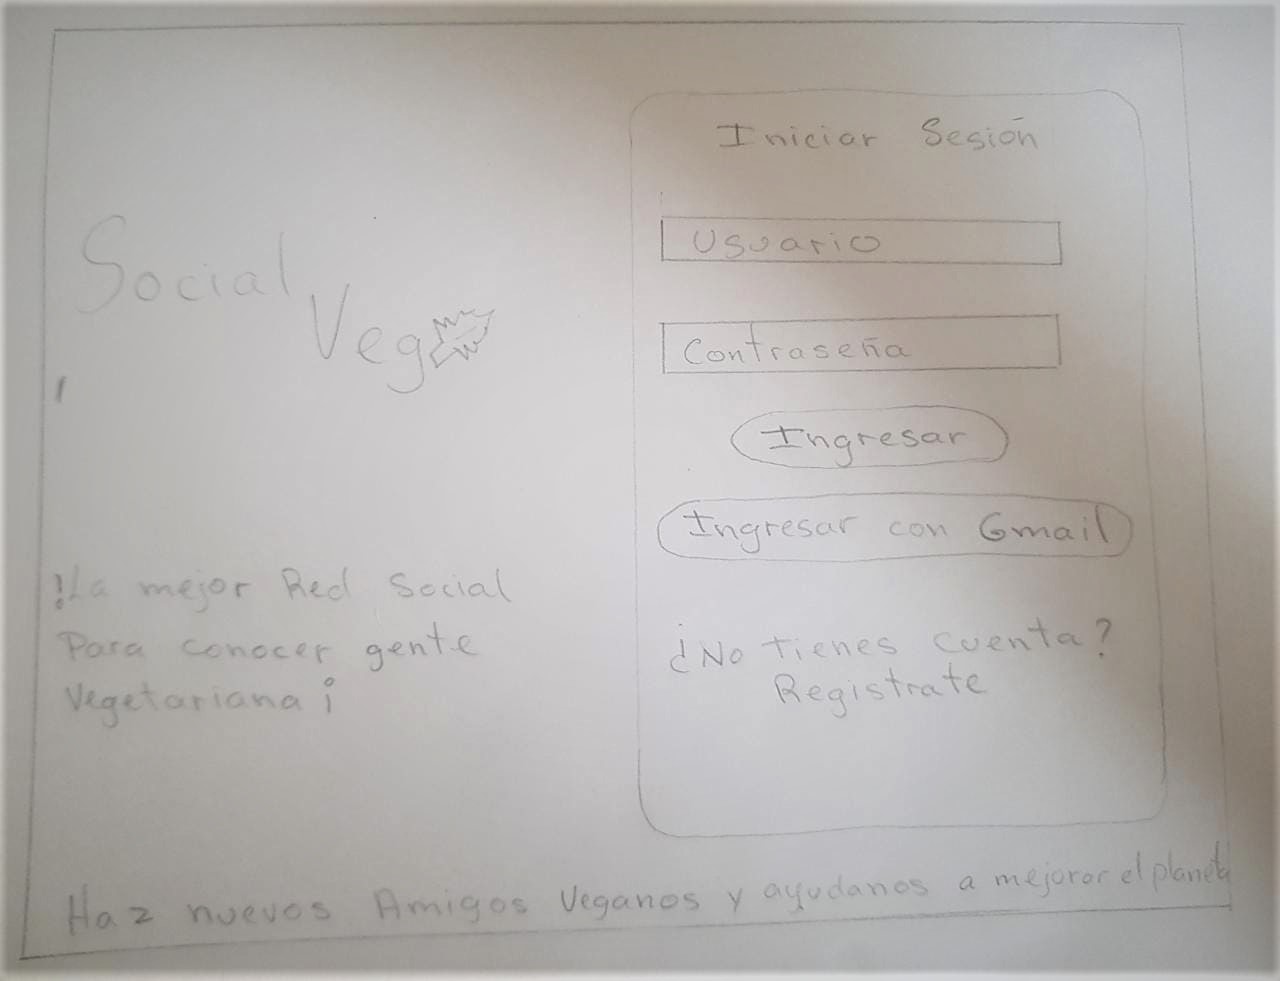 Social
Veg
!La mejor Red Social
Para conocer gente
Vegetariana¡
Iniciar Sesión
Usuario
Contraseña
Ingresar
Ingresar con Gmail
¿No tienes cuenta?
Registrate
Haz nuevos Amigos Veganos y ayudanos a mejorar el planeta